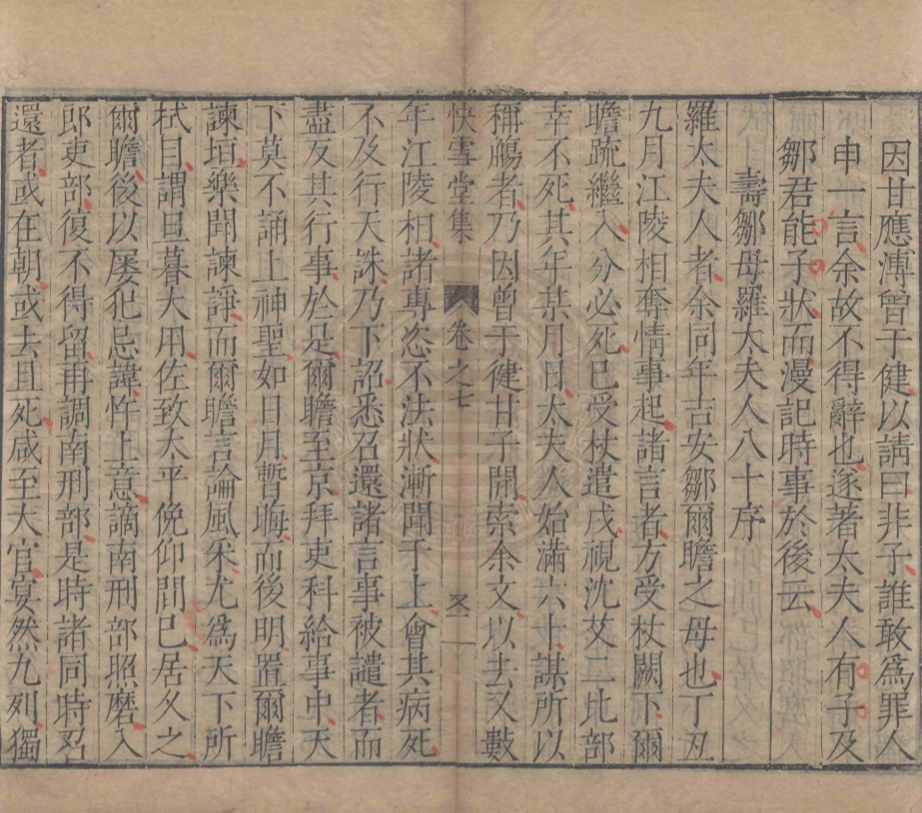 因甘應溥曾于健以請曰非子誰敢為罪人
申一言余故不得辭也遂著太夫人有子及
鄒君能子狀而漫記時事於後云
壽鄒母羅太夫人八十序
羅太夫人者余同年吉安鄒爾瞻之母也丁丑
九月江陵相奪情事起諸言者方受杖闕下爾
瞻疏繼入分必死已受杖遣戍視沈艾二比部
幸不死其年某月日太夫人始滿六十謀所以
稱觴者乃因曾于健甘子開索余文以去又數
快雪堂集 卷之七
年江陵相諸專恣不法狀漸聞于上會其病死
不及行天誅乃下詔悉召還諸言事被譴者而
盡反其行事於是爾瞻至京拜吏科給事中天
下莫不誦上神聖如日月暫晦而後明置爾瞻
諫垣樂聞諫諍而爾瞻言論風采尤為天下所
栻目謂旦暮大用佐致太平俛仰間已居久之
爾瞻後以屢犯忌諱忤上意謫南刑部照磨入
郎吏部復不得留再調南刑部是時諸同時召
還者或在朝或去且死咸至大官寘然九列獨